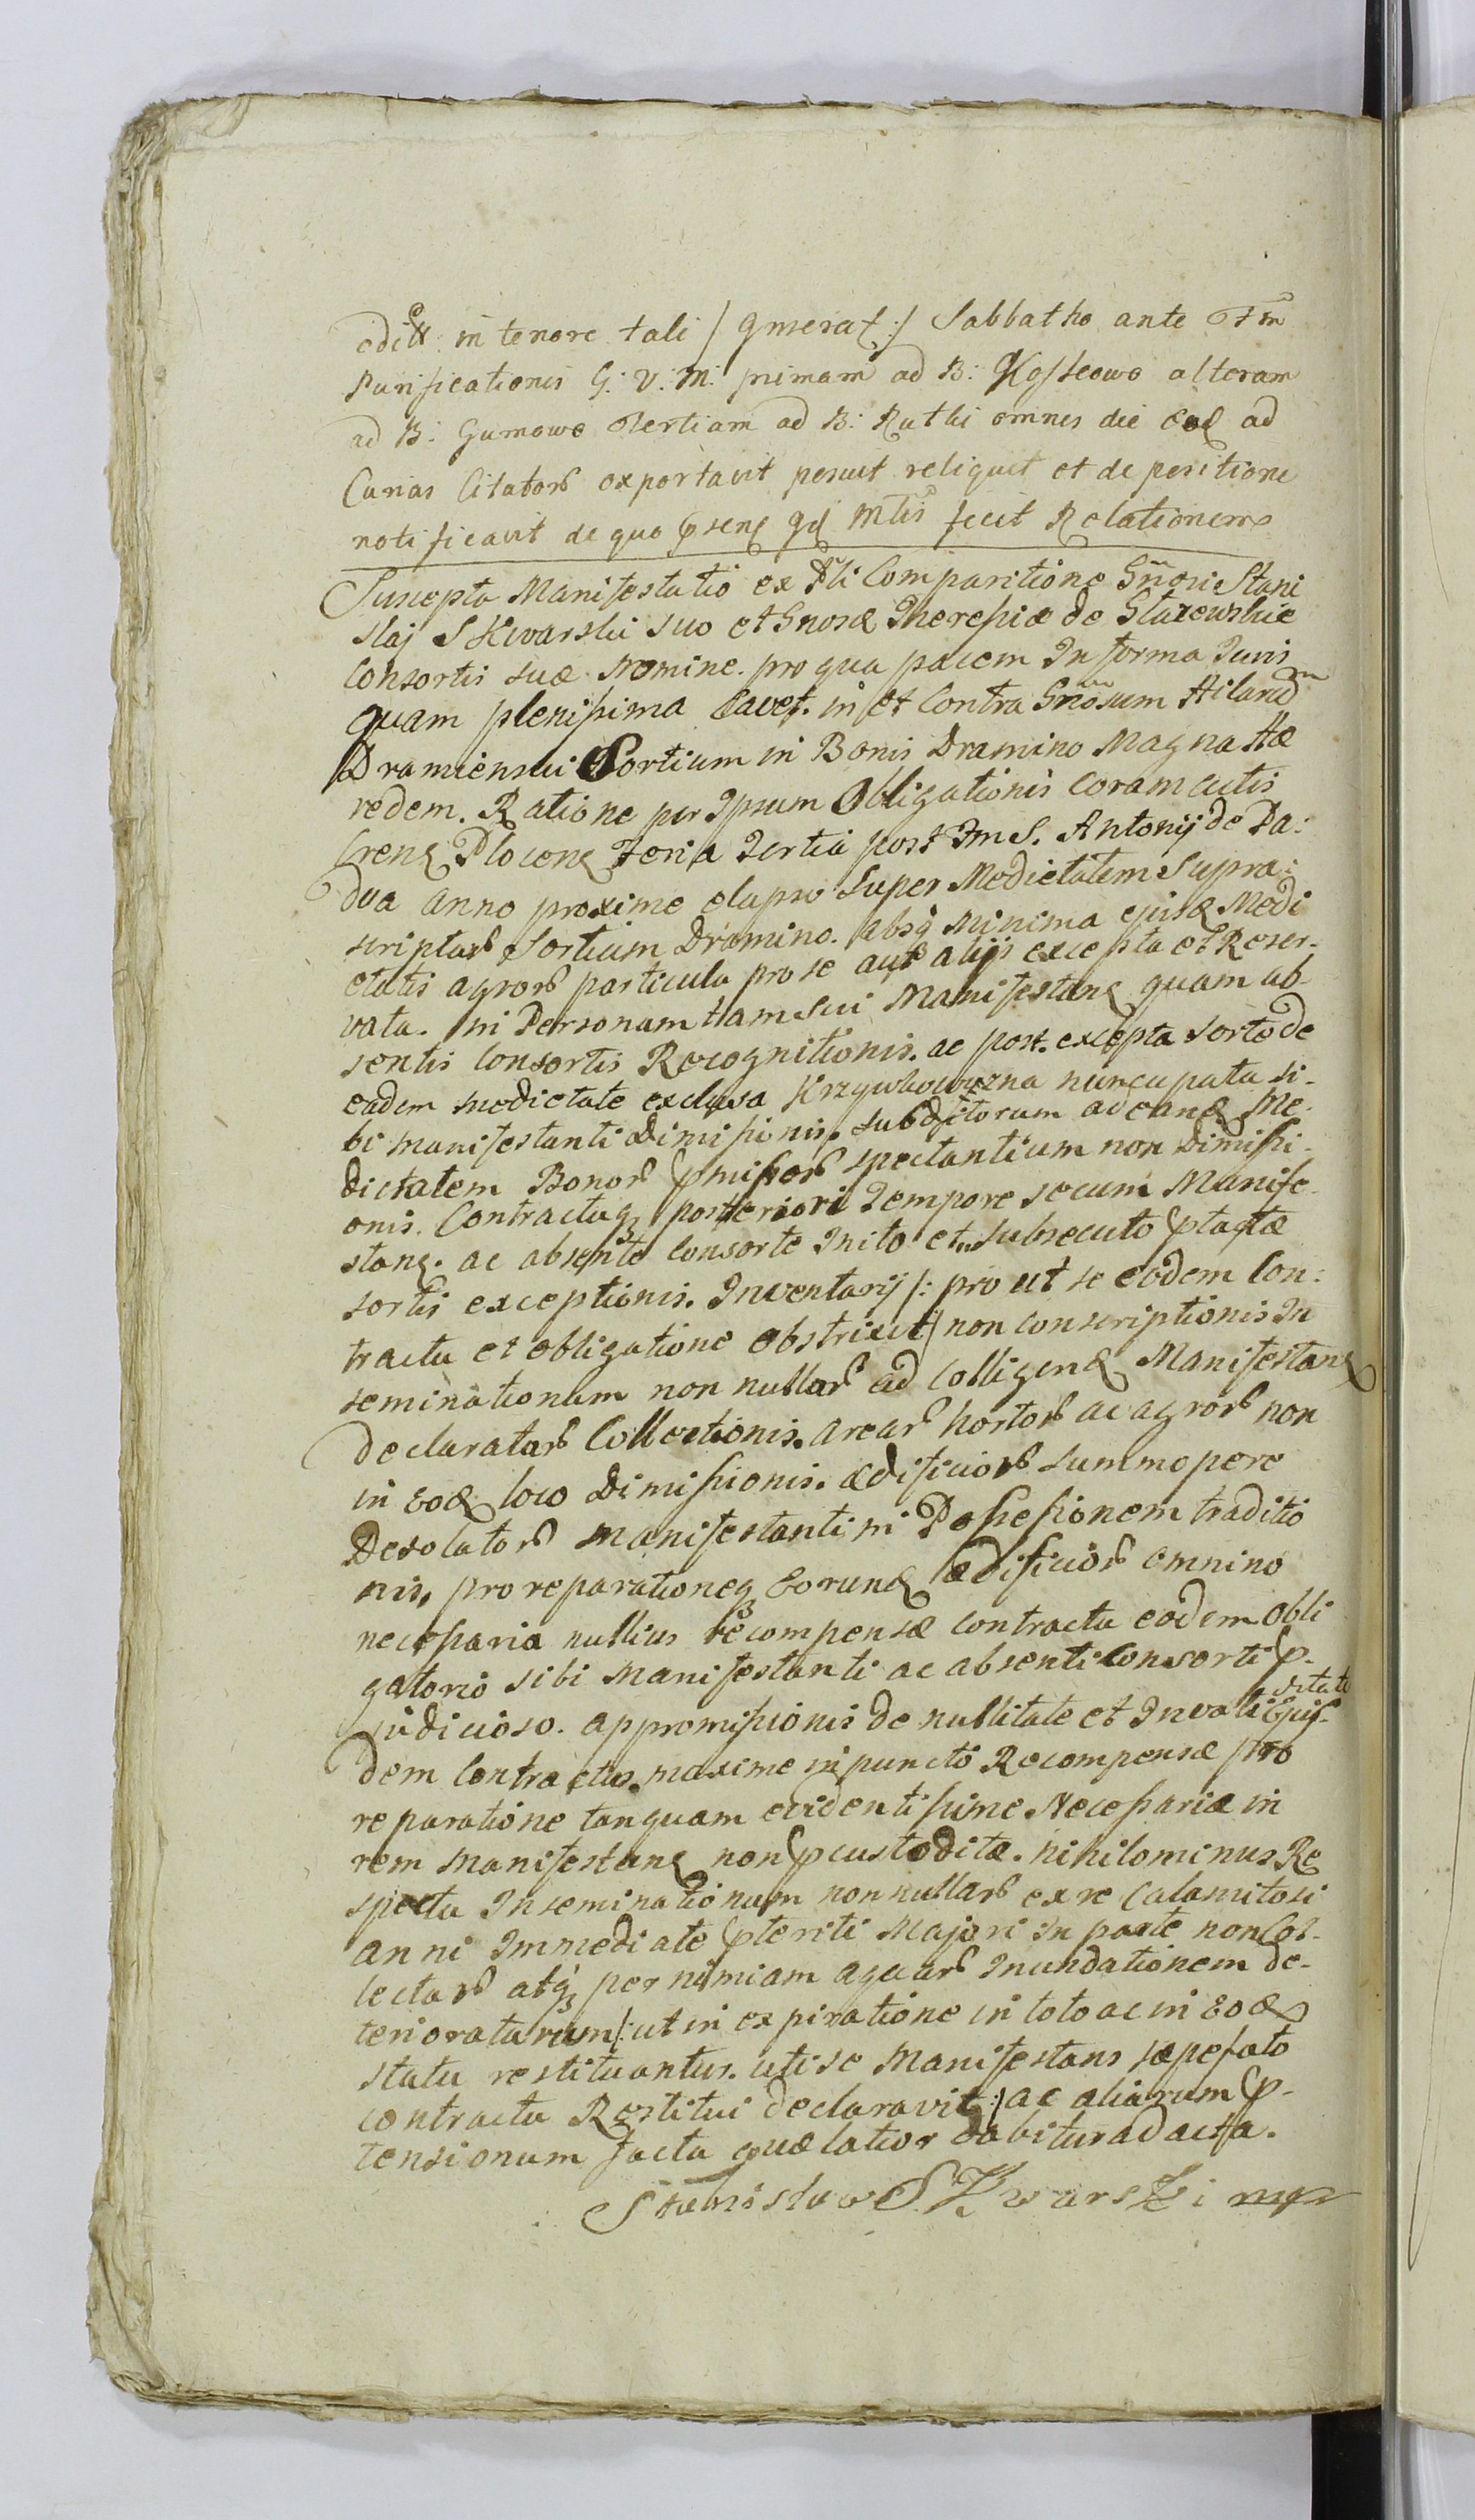 edictt in tenore tali /: qmserat :/ Sabbatho ante Fm
Purificationis G: V: M: primam ad B: Kosscowo alteram
ad B: Gumowo Tertiam ad B: Rutki omnes die ead ad
Curias Citator exportavit posuit reliquit et de positione
notificavit de quo psens gd Mtis fecit Relationem
Suscepta Manifestatio ex Psli Comparitione Gnosi Stani
slaj Skwarski suo et Gnosæ Theresiæ de Glazewskie
Consortis suæ Nomine. pro qua pacem In forma Juris
quam plenissima Cavet. in et Contra Gnosum Hilarium
Dramienski Sortium in Bonis Dramino Magna Hæ
redem. Ratione per Ipsum Obligationis coram actis
Crens Plocens Feria Tertia post Fm S. Antonij de Pa:
dua anno proxime elapso Super Medietatem Supra:
scriptar Sortium Dramino. absq minima ejusd Medi
etatis agror particula pro se aut alijs excepta et Reser-
vata. in Personam tam sui Manifestans quam ab-
sentis Consortis Recognitionis. ac post. excepta sorte de
eadem medietate exclusa Krzywkowizna nuncupata si-
bi Manifestanti Dimissionis. subditorum ad eand Me-
dietatem Bonor pmissor spectantium non Dimissi-
onis. Contractuq posteriori Tempore secum Manife-
stans. ac absente Consorte Inito et subsecuto ptactæ
sortis exceptionis. Inventarij /: pro ut se eodem Con:
tractu et obligatione obstrixit :/ non conscriptionis In
seminationum non nullar ad Colligend Manifestans
declaratar Collectionis. arear hortor ac agror non
in eod loco Dimissionis. ædificior summopere
Desolator Manifestanti in Possessionem traditio
nis, pro reparationeq Eorund ædificior omnino
necessaria nullius recompensæ contractu eodem Obli
gatorio sibi Manifestanti ac absenti Consorti p-
judicioso. appromissionis de nullitate et Invaliditate Ejus-
dem Contractus. maxime in puncto Recompensæ pro
reparatione tanquam evidentissime Necessariæ in
rem Manifestans non pcustoditæ. nihilominus Re
spectu Inseminationum nonnullar ex re Calamitosi
anni Immediate pteriti Majori In parte non Col-
lectar atq per nimiam aquar Inundationem de-
terioratarum /: ut in expiratione in toto ac in eod
statu restituantur. uti se Manifestans sæpefato
contractu Restitui declaravit :/ ac aliarum p-
tensionum facta quæ latior dabitur ad acta.
Stanisław Skwarski mp